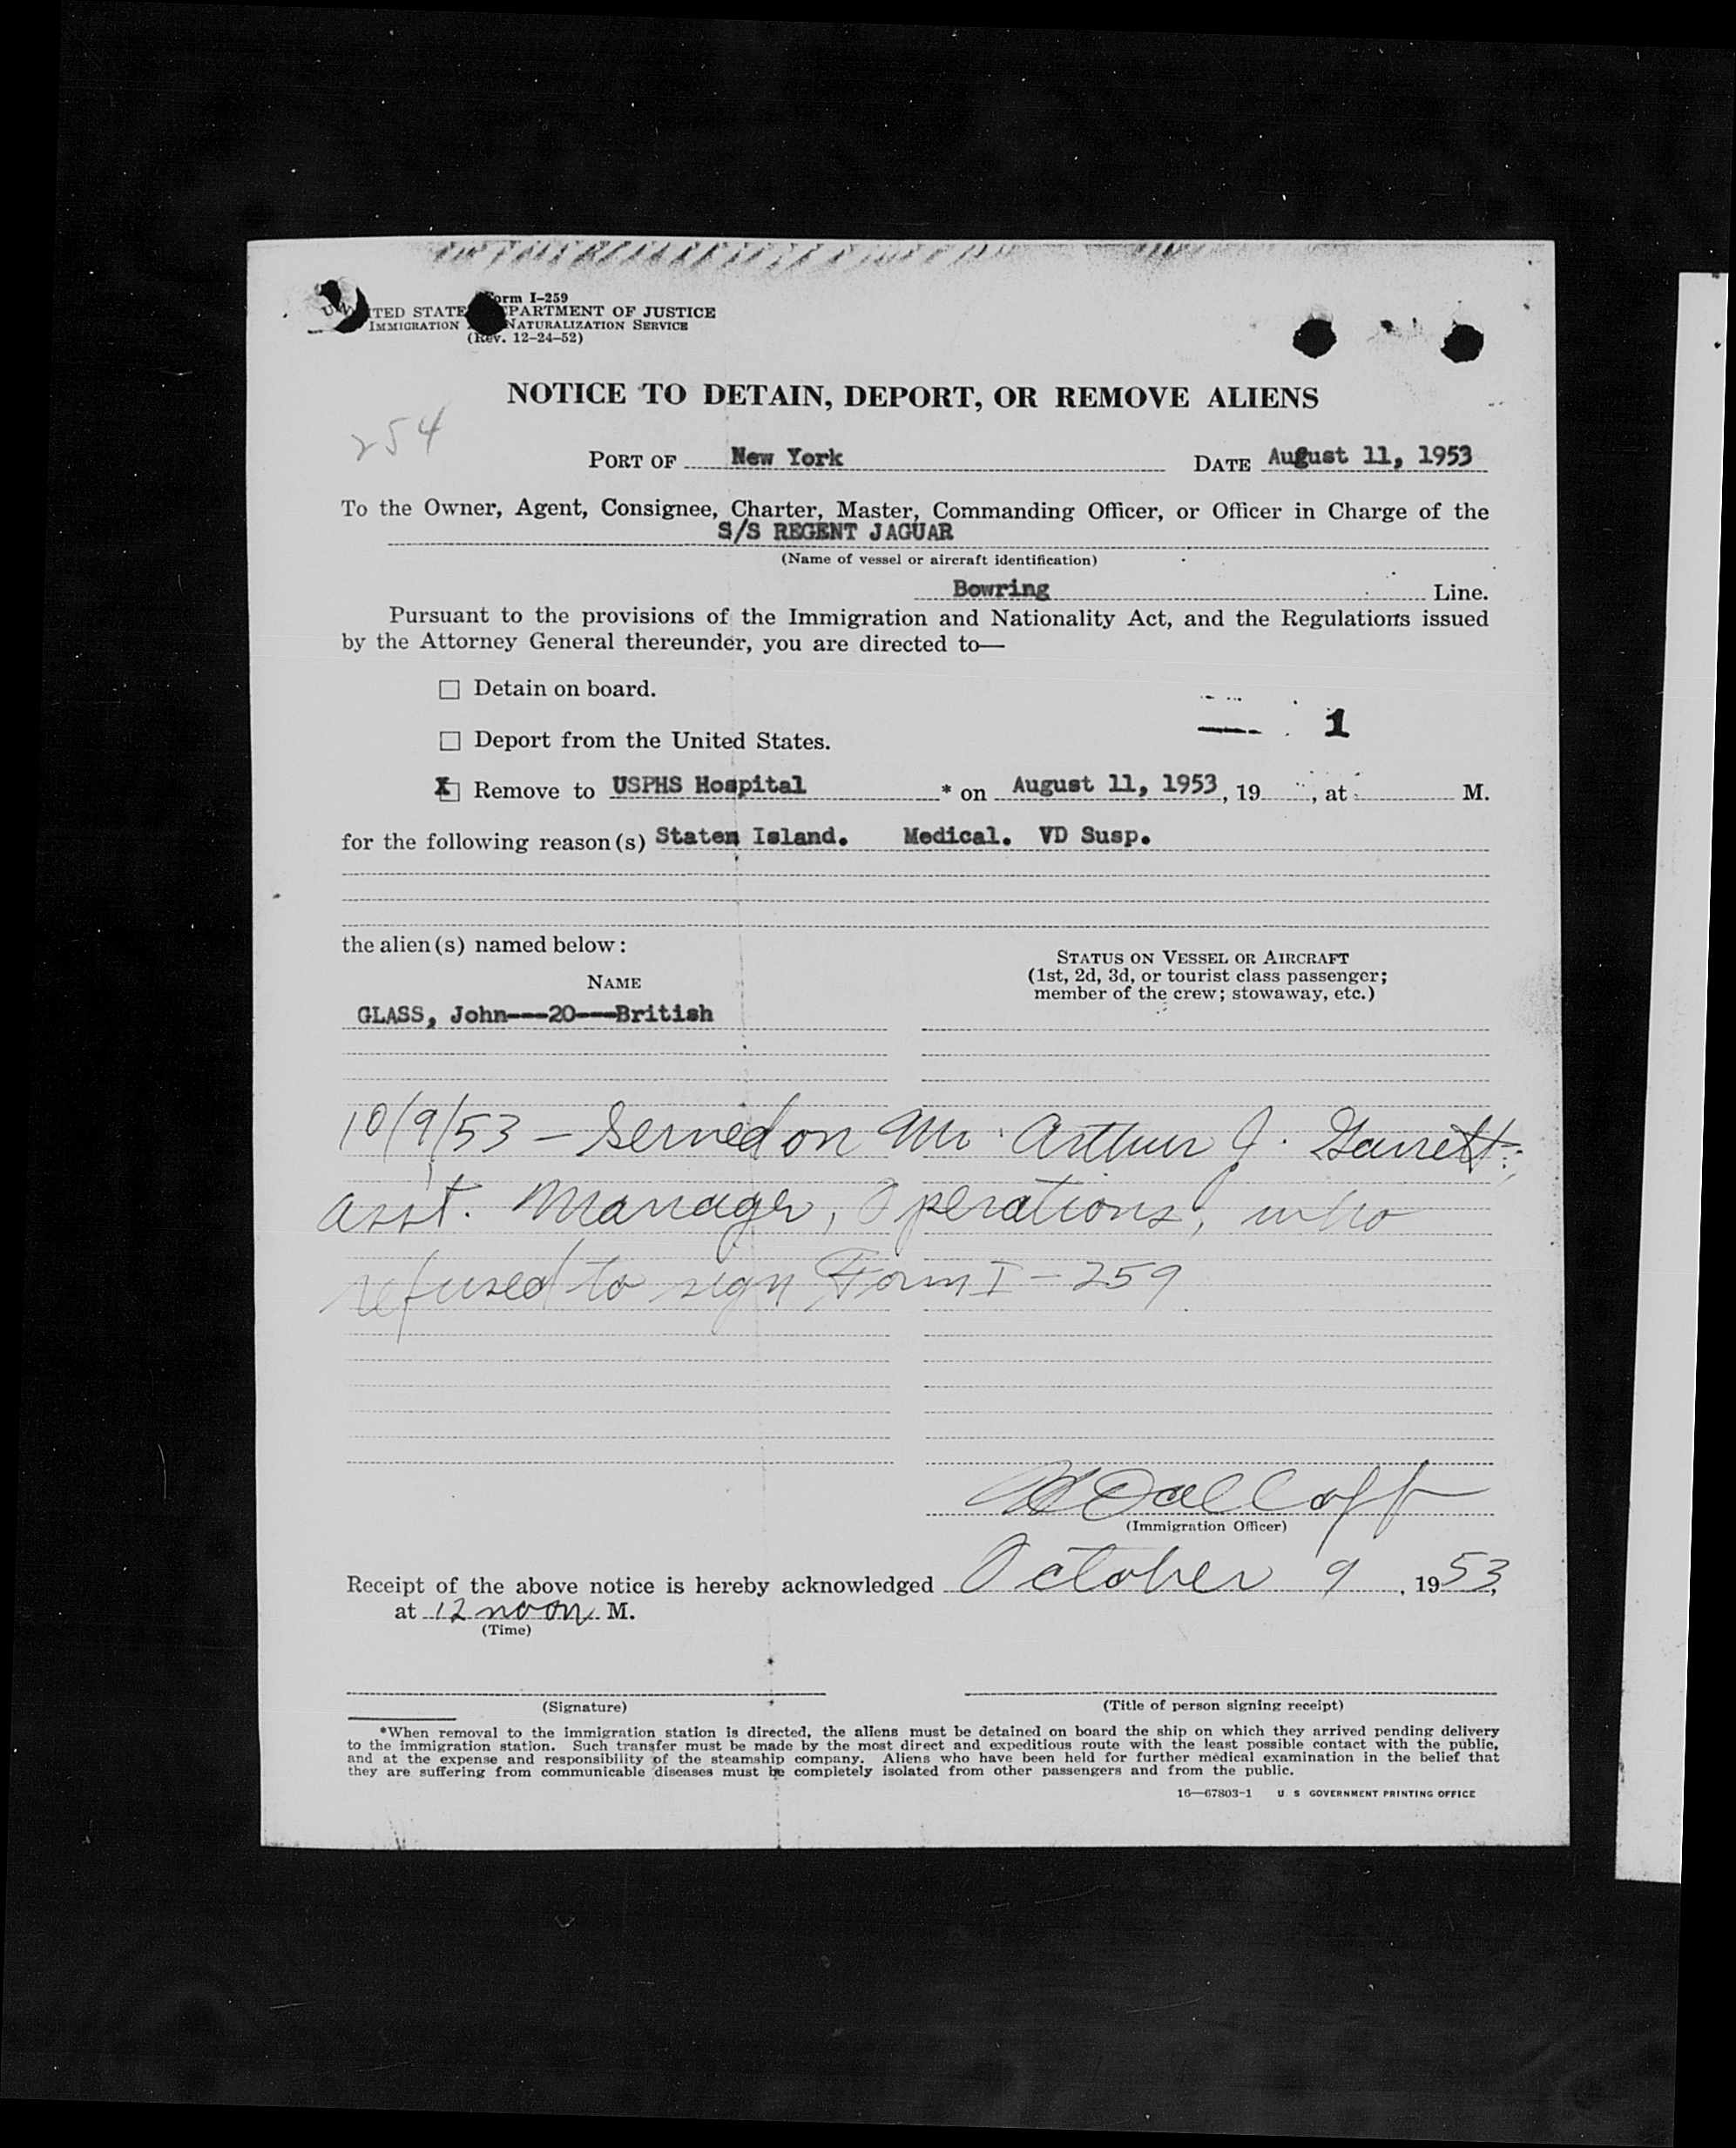 Form I-259
UNITED STATES DEPARTMENT OF JUSTICE
IMMIGRATION NATURALIZATION SERVICE
(Rev. 12-24-52)
NOTICE TO DETAIN, DEPORT, OR REMOVE ALIENS
254
PORT OF New York DATE August 11, 1953
To the Owner, Agent, Consignee, Charter, Master, Commanding Officer, or Officer in Charge of the
S/S REGENT JAGUAR
(Name of vessel or aircraft identification)
Bowring Line.
Pursuant to the provisions of the Immigration and Nationality Act, and the Regulations issued
by the Attorney General thereunder, you are directed to—
☐ Detain on board.
1
☐ Deport from the United States.
X☐ Remove to USPHS Hospital * on August 11, 1953, 19 , at M.
for the following reason(s) Staten Island. Medical. VD Susp.
the alien(s) named below:
STATUS ON VESSEL OR AIRCRAFT
(1st, 2d, 3d, or tourist class passenger;
member of the crew; stowaway, etc.)
NAME
GLASS, John---20---British
10/9/53 - Served on Mr. Arthur J. Garrett,
asst. Manager, Operations, who
refused to sign Form I-259
(Immigration Officer)
Receipt of the above notice is hereby acknowledged October 9, 1953,
at 12 noon M.
(Time)
(Signature) (Title of person signing receipt)
*When removal to the immigration station is directed, the aliens must be detained on board the ship on which they arrived pending delivery
to the immigration station. Such transfer must be made by the most direct and expeditious route with the least possible contact with the public,
and at the expense and responsibility of the steamship company. Aliens who have been held for further medical examination in the belief that
they are suffering from communicable diseases must be completely isolated from other passengers and from the public.
16—67803-1 U S GOVERNMENT PRINTING OFFICE